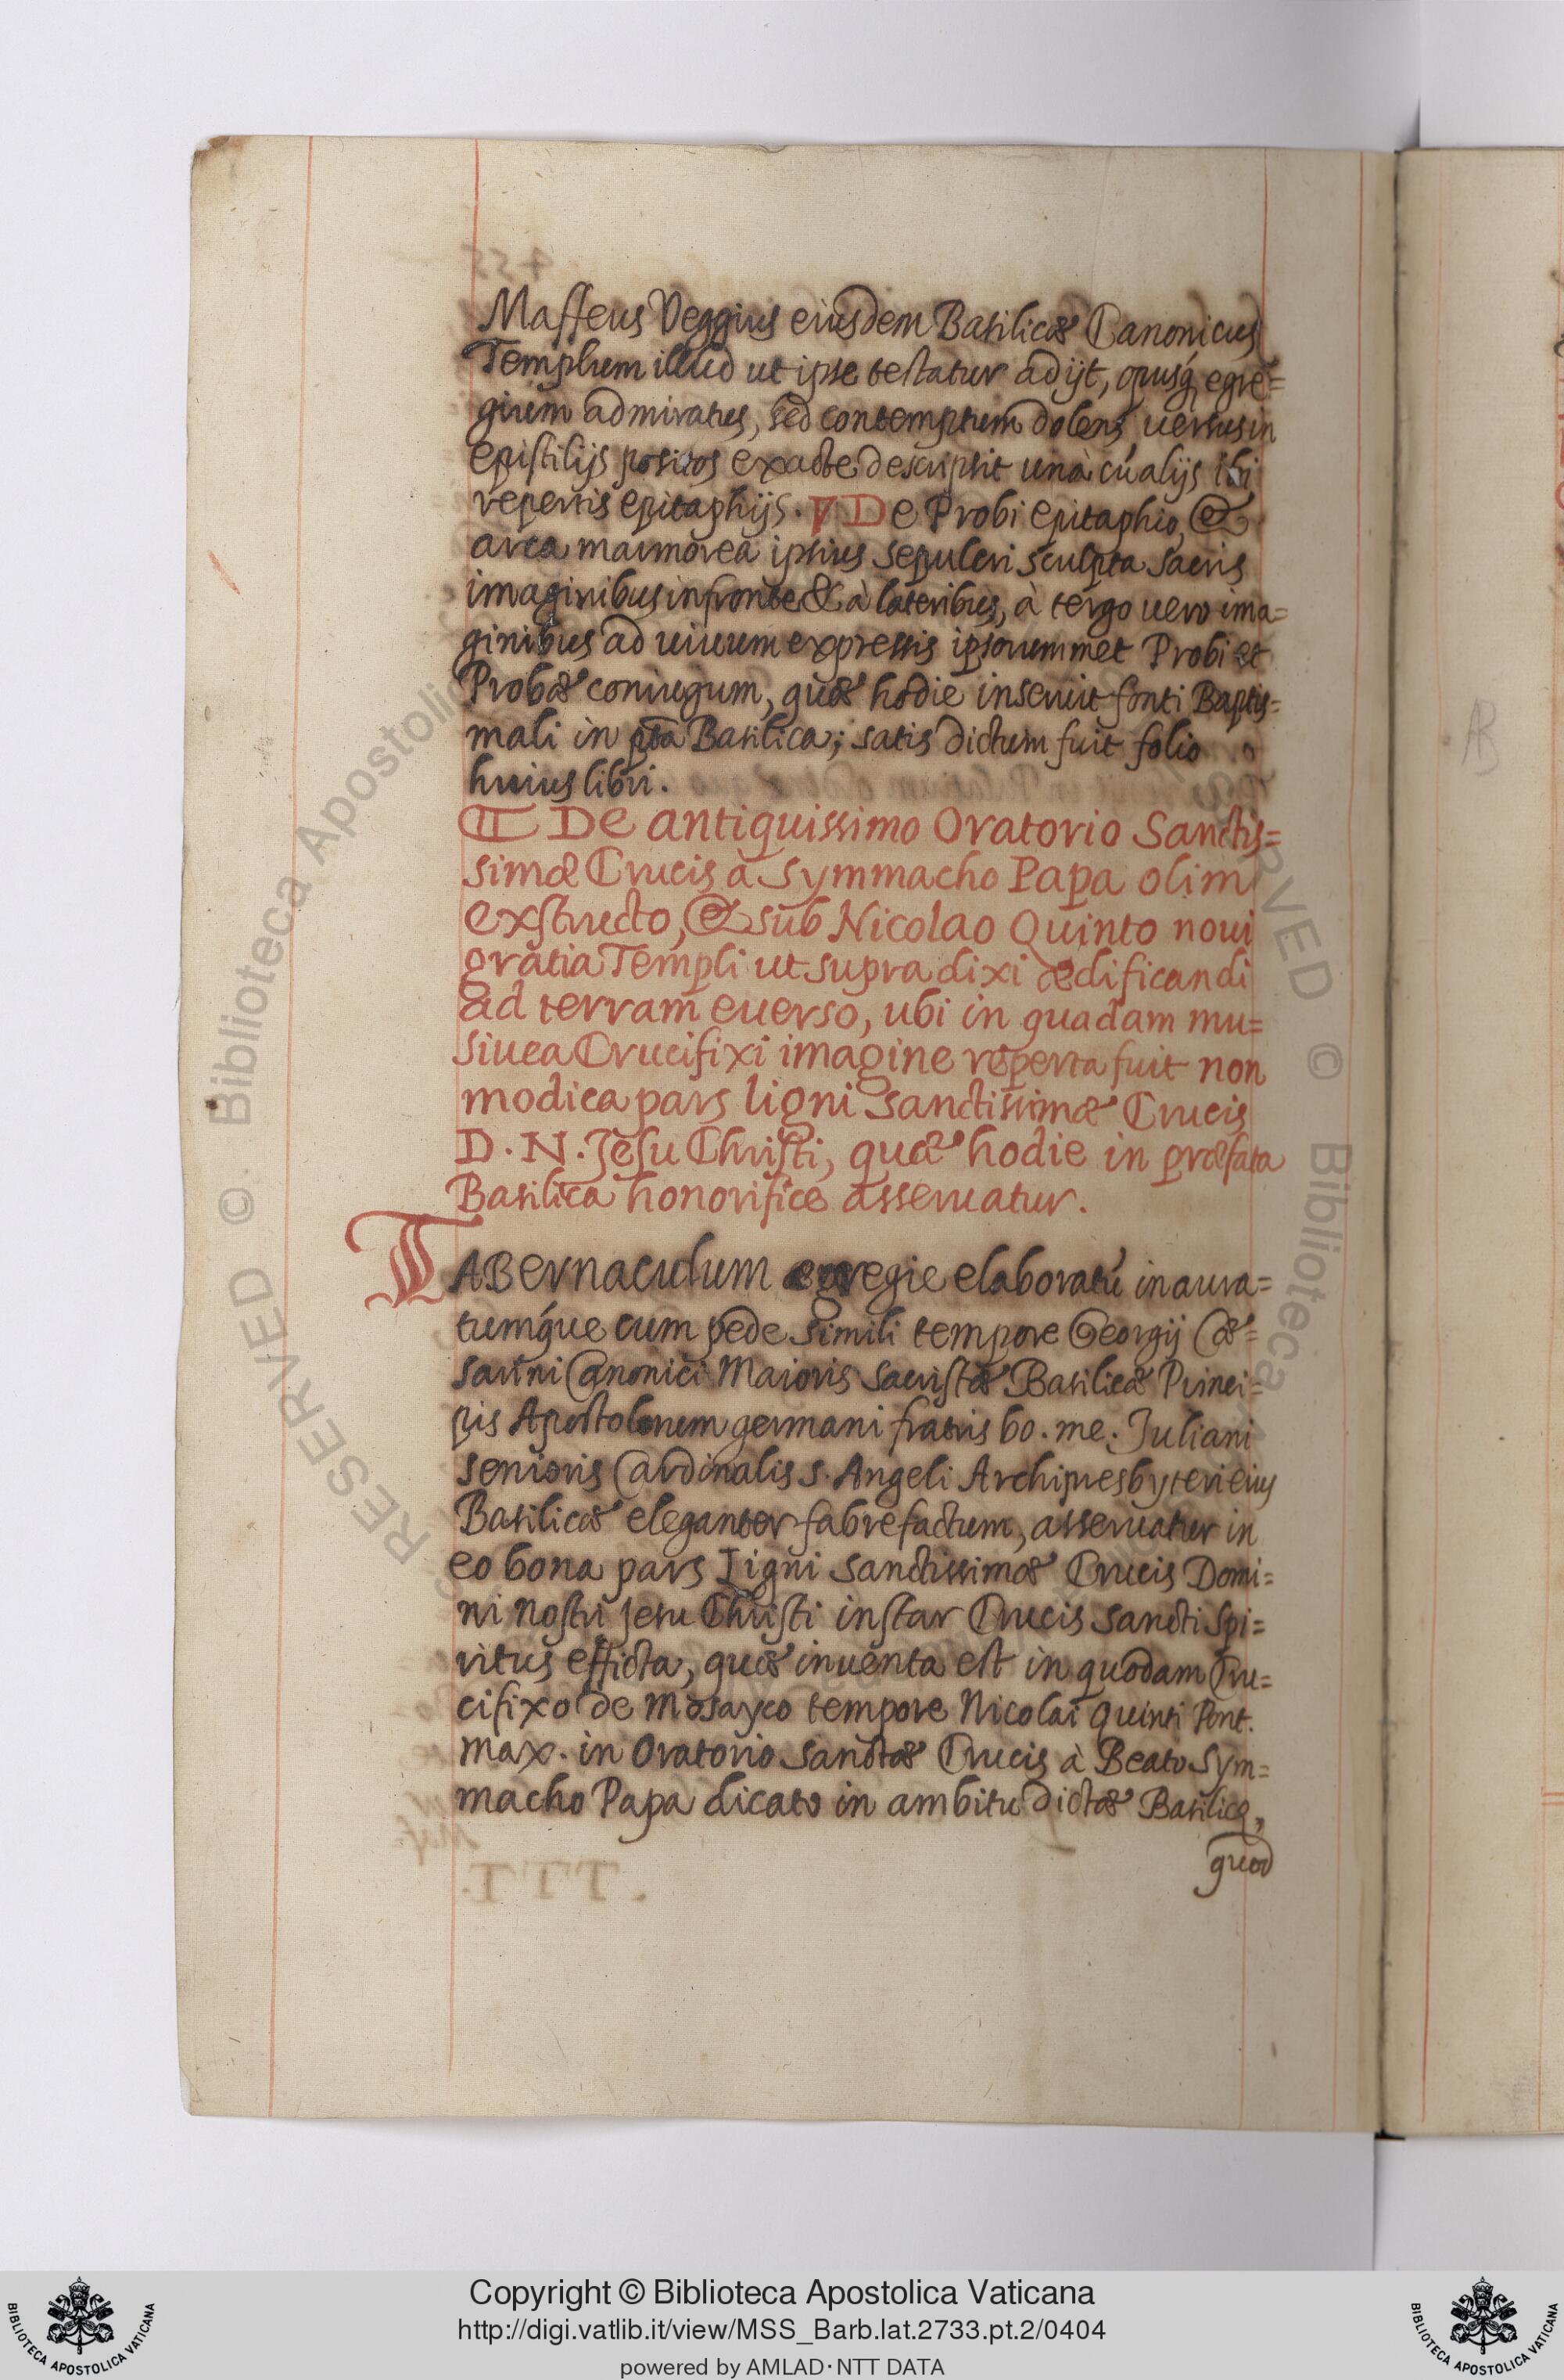 Maffeus Veggius eiusdem Basilicæ Canonicus
Templum illud ut ipse testatur adijt, opusq́ egre=
gium admiratus, sed contemptum dolens versus in
epistilijs positos exacte descripsit unà cú alijs ibi
repertis epitaphijs. V De Probi epitaphio, &
arca marmorea ipsius sepulcri sculpta sacris
imaginibus in fronte & à lateribus, à tergo vero ima=
ginibus ad uiuum expressis ipsorummet Probi et
Probæ coniugum, quæ hodie inseruit fonti Baptis=
mali in pta Basilica; satis dictum fuit folio
huius libri.
De antiquissimo Oratorio Sanctis=
simæ Crucis à Symmacho Papa olim
exstructo, & sub Nicolao Quinto noui
gratia Templi ut supra dixi ædificandi
ad terram euerso, ubi in quadam mu=
siuea Crucifixi imagine reperta fuit non
modica pars ligni Sanctissimæ Crucis
D. N. Jesu Christi, quæ hodie in præfata
Basilica honorifice asseruatur.
TABernaculum egregie elaboratú inaura=
tumq́ue cum pede simili tempore Georgij Cæ=
sarini Canonici Maioris Sacristæ Basilicæ Princi=
pis Apostolorum germani fratris bo. me. Juliani
senioris Cardinalis S. Angeli Archipresbyteri eius
Basilicæ eleganter fabrefactum, asseruatur in
eo bona pars Ligni Sanctissimæ Crucis Domi=
ni nostri Jesu Christi instar Crucis Sancti Spi=
ritus efficta, quæ inuenta est in quodam Cru=
cifixo de Mosayco tempore Nicolai Quinti Pont.
max. in Oratorio Sanctæ Crucis à Beato Sym=
macho Papa dicato in ambitu dictæ Basilicę,
quod
RESERVED © Biblioteca Apostolica
RVED © Biblioteca
Copyright © Biblioteca Apostolica Vaticana
http://digi.vatlib.it/view/MSS_Barb.lat.2733.pt.2/0404
powered by AMLAD·NTT DATA
BIBLIOTECA APOSTOLICA VATICANA
BIBLIOTECA APOSTOLICA VATICANA